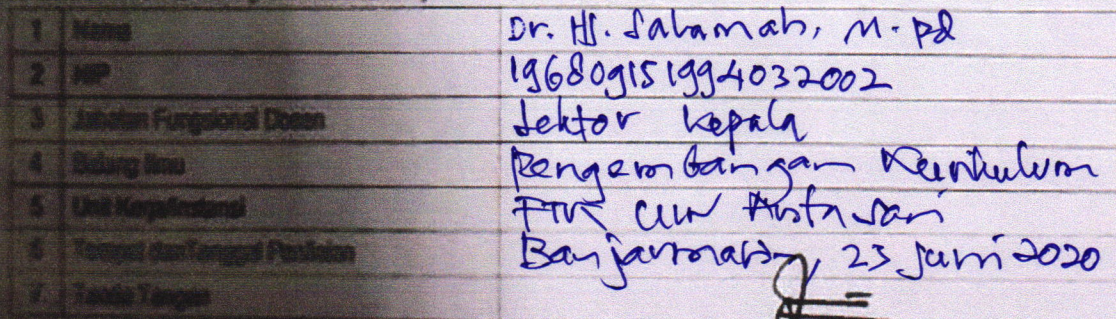 1 Nama Dr. Hj. Salamah, M.Pd
2 NIP 196809151994032002
3 Jabatan Fungsional Dosen Lektor Kepala
4 Bidang Ilmu Pengembangan Kurikulum
5 Unit Kerja/Instansi FTK UIN Antasari
6 Tempat dan Tanggal Penilaian Banjarmasin, 23 Juni 2020
7. Tanda Tangan